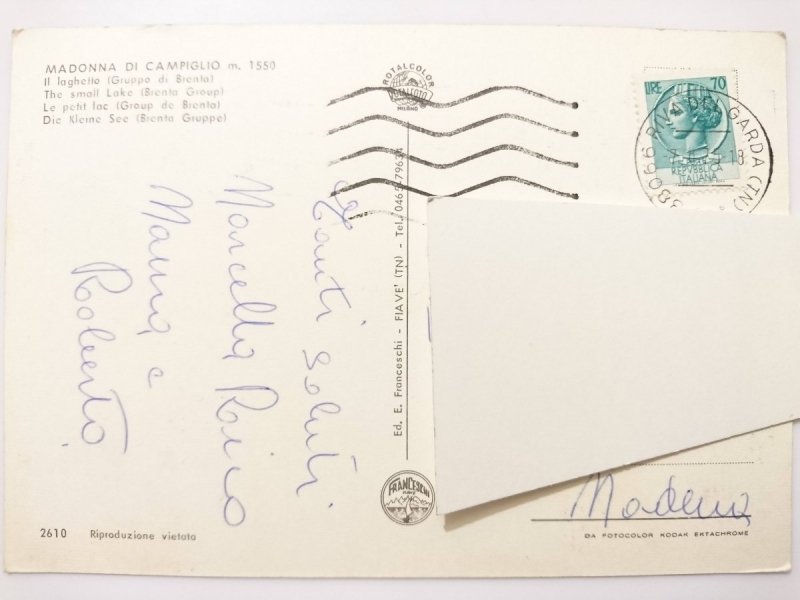 MADONNA DI CAMPIGLIO m. 1550
Il laghetto (Gruppo di Brenta)
The small Lake (Brenta Group)
Le petit lac (Group de Brenta)
Die Kleine See (Brenta Gruppe)
ROTALCOLOR
ROTALFOTO
MILANO
LIRE 70
REPVBBLICA
ITALIANA
38066 RIVA DEL GARDA (TN)
Tanti saluti
Marcella Rino
Mamma e
Roberto
Ed. E. Franceschi - FIAVE' (TN) - Tel. 0465-79634
FRANCESCHI
FIAVE'
Modena
2610 Riproduzione vietata
DA FOTOCOLOR KODAK EKTACHROME